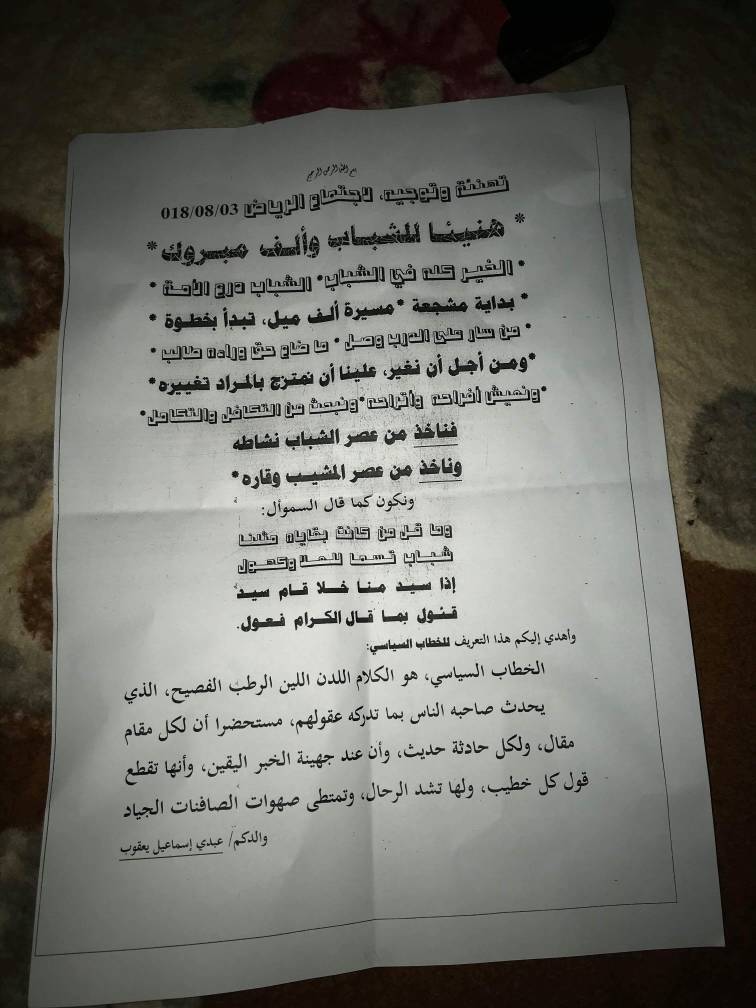 بسم الله الرحمن الرحيم
تهنئة وتوجيه، لاجتماع الرياض 018/08/03
* هنيئا للشباب وألف مبروك *
* الخير كله في الشباب* الشباب درع الأمة *
* بداية مشجعة *مسيرة ألف ميل، تبدأ بخطوة *
* من سار على الدرب وصل* ما ضاع حق وراءه طالب *
*ومن أجل أن نغير، علينا أن نمتزج بالمراد تغييره*
*ونعيش أفراحه وأتراحه*ونبحث عن التكافل والتكامل*
فناخذ من عصر الشباب نشاطه
وناخذ من عصر المشيب وقاره*
ونكون كما قال السموأل:
وما قل من كانت بقاياه مثلنا
شباب تسما للعلا وكهول
إذا سيد منا خلا قام سيد
قئول بما قال الكرام فعول.
وأهدي إليكم هذا التعريف للخطاب السياسي:
الخطاب السياسي، هو الكلام اللدن اللين الرطب الفصيح، الذي
يحدث صاحبه الناس بما تدركه عقولهم، مستحضرا أن لكل مقام
مقال، ولكل حادثة حديث، وأن عند جهينة الخبر اليقين، وأنها تقطع
قول كل خطيب، ولها تشد الرحال، وتمتطى صهوات الصافنات الجياد
والدكم/ عبدي إسماعيل يعقوب